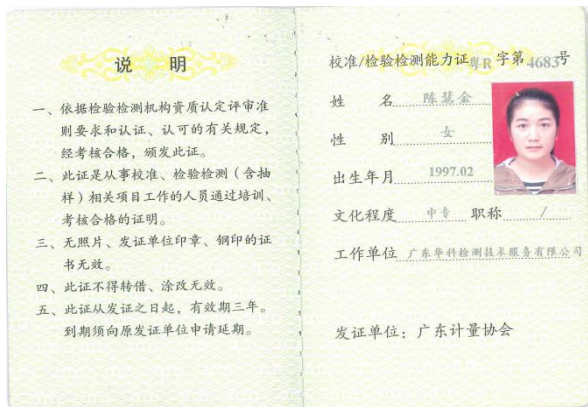 说 明
一、依据检验检测机构资质认定评审准
则要求和认证、认可的有关规定，
经考核合格，颁发此证。
二、此证是从事校准、检验检测（含抽
样）相关项目工作的人员通过培训、
考核合格的证明。
三、无照片、发证单位印章、钢印的证
书无效。
四、此证不得转借、涂改无效。
五、此证从发证之日起，有效期三年。
到期须向原发证单位申请延期。
校准/检验检测能力证粤R字第4683号
姓 名 陈慧金
性 别 女
出生年月 1997.02
文化程度 中专 职称 /
工作单位 广东华科检测技术服务有限公司
发证单位：广东计量协会